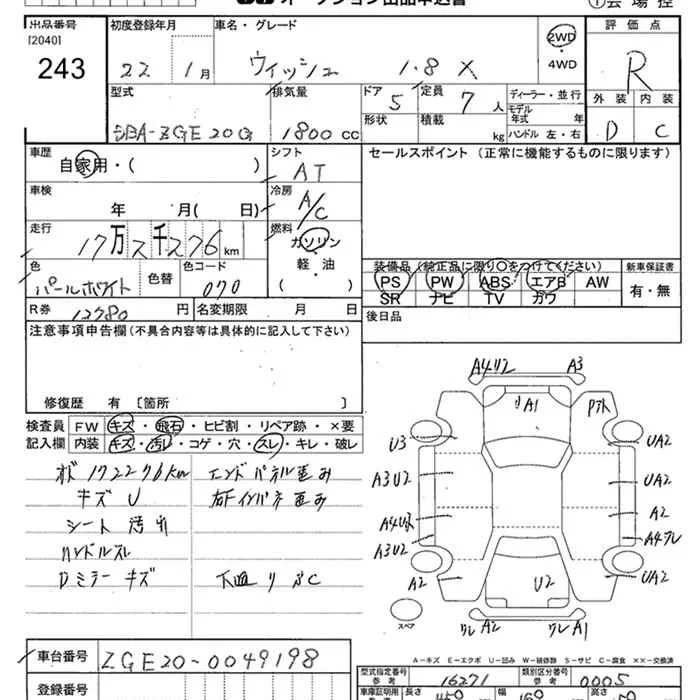 オークション出品申込書
①会場控
出品番号 初度登録年月 車名・グレード 評価点
[2040]
243 22 1月 ウィッシュ 1.8 X 2WD
・
4WD R
型式 排気量 ドア 定員 ディーラー・並行 外装 内装
DBA-ZGE20G 1800 CC 5 7人 モデル年式 年 D C
形状 積載 kg ハンドル 左・右
車歴 シフト セールスポイント (正常に機能するものに限ります)
自家用・( ) AT
車検 冷房
年 月( 日) A/C
走行 燃料
17万2千276km ガソリン
・
軽油
・
装備品 (純正品に限り○をつけてください) 新車保証書
色 色替 色コード PS PW ABS エアB AW 有・無
パールホワイト 070 SR ナビ TV カワ
R券 12780円 名変期限 月 日 後日品
注意事項申告欄(不具合内容等は具体的に記入して下さい)
修復歴 有 〔箇所
検査員 FW キズ・飛石・ヒビ割・リペア跡・×要
記入欄 内装 キズ・汚れ・コゲ・穴・スレ・キレ・破レ
172276km エンドパネル歪み
キズ U 右インパネ歪み
シート 汚れ
ハンドルスレ
Dミラーキズ 下廻りサビC
A3
UA1
U3 UA2
A3U2 UA2
A2
A3U2
A2 U2 UA2
スペア ワレ A2 ワレ A1
A-キズ E-エクボ U-凹み W-補修跡 S-サビ C-腐食 ××-交換済
車台番号 ZGE20-0049198
型式指定番号 参考 16271 類別区分番号 参考 0005
登録番号 車庫証明用 長さ 幅 高さ